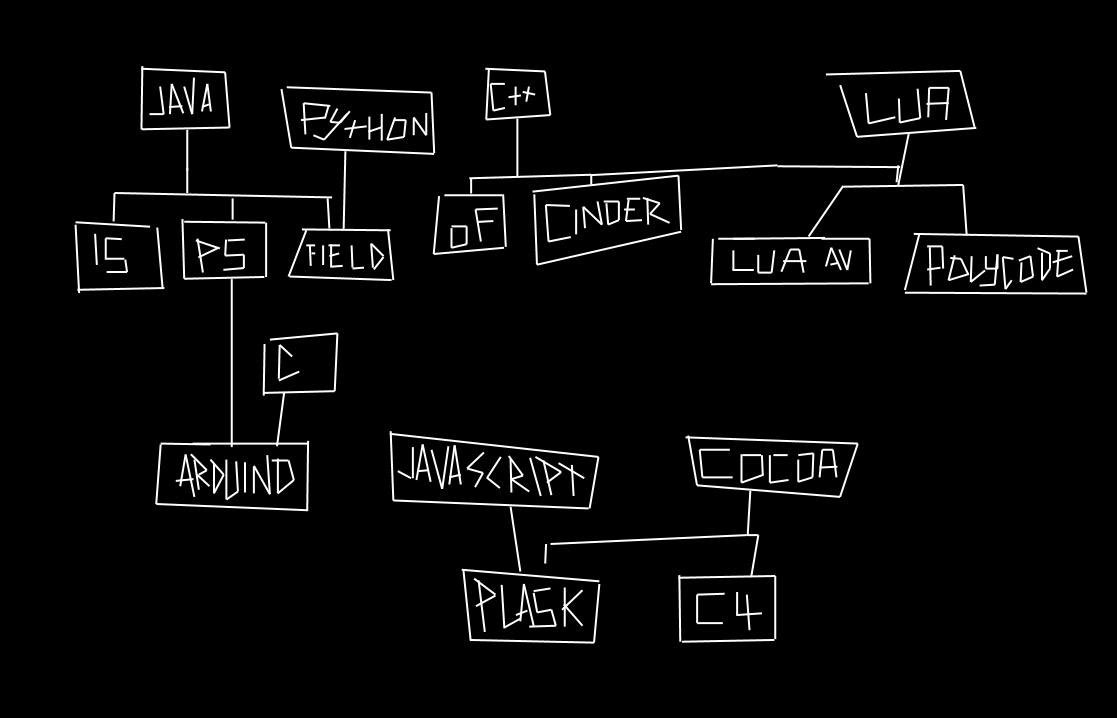 JAVA
PYTHON
C++
LUA
IS
PS
FIELD
OF
CINDER
LUA AV
POLYCODE
C
ARDUINO
JAVASCRIPT
COCOA
PLASK
C4